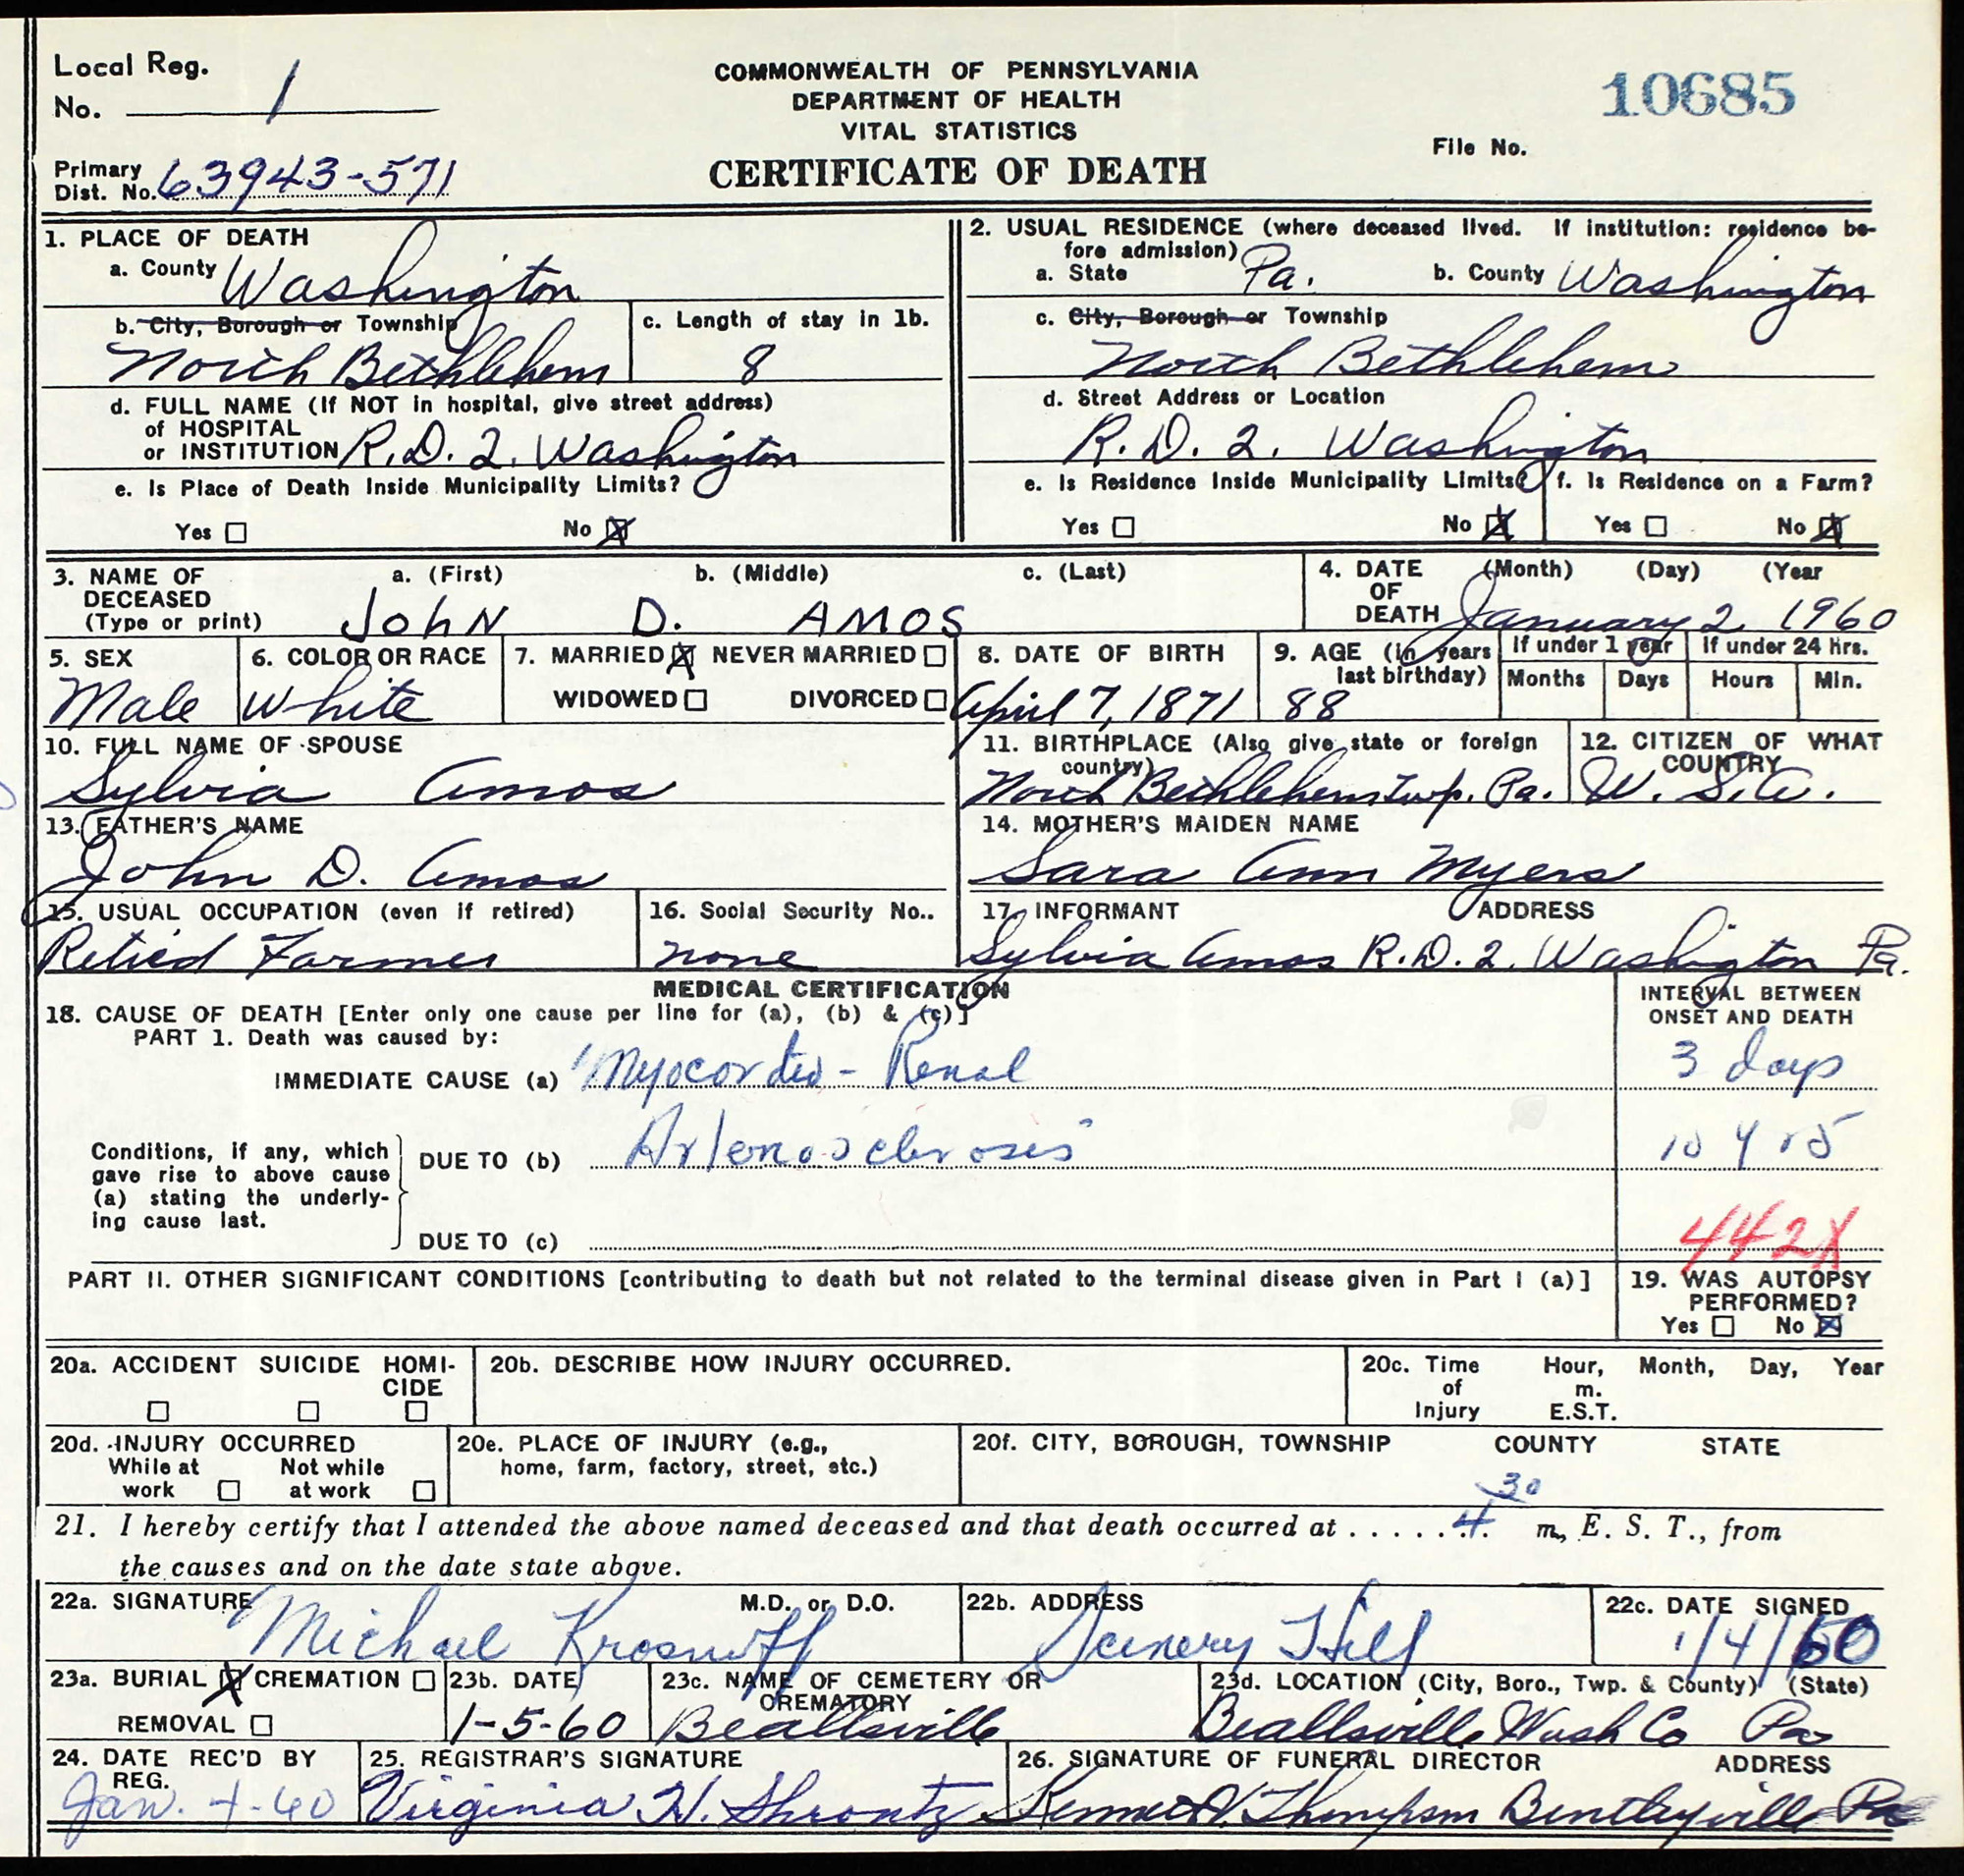 Local Reg.
No. 1
COMMONWEALTH OF PENNSYLVANIA
DEPARTMENT OF HEALTH
VITAL STATISTICS
CERTIFICATE OF DEATH
10685
File No.
Primary
Dist. No. 63943-571
1. PLACE OF DEATH
a. County Washington
b. City, Borough or Township
North Bethlehem
c. Length of stay in 1b.
8
d. FULL NAME (If NOT in hospital, give street address)
of HOSPITAL
or INSTITUTION R.D. 2. Washington
e. Is Place of Death Inside Municipality Limits?
Yes ☐ No ☒
2. USUAL RESIDENCE (where deceased lived. If institution: residence be-
fore admission)
a. State Pa. b. County Washington
c. City, Borough or Township
North Bethlehem
d. Street Address or Location
R.D. 2. Washington
e. Is Residence Inside Municipality Limits?
Yes ☐ No ☒
f. Is Residence on a Farm?
Yes ☐ No ☒
3. NAME OF
DECEASED
(Type or print)
a. (First) b. (Middle) c. (Last)
JOHN D. AMOS
4. DATE
OF
DEATH
(Month) (Day) (Year
January 2, 1960
5. SEX
Male
6. COLOR OR RACE
White
7. MARRIED ☒ NEVER MARRIED ☐
WIDOWED ☐ DIVORCED ☐
8. DATE OF BIRTH
April 7, 1871
9. AGE (in years
last birthday)
88
If under 1 year
Months Days
If under 24 hrs.
Hours Min.
10. FULL NAME OF SPOUSE
Sylvia Amos
11. BIRTHPLACE (Also give state or foreign
country)
North Bethlehem Twp. Pa.
12. CITIZEN OF WHAT
COUNTRY
U. S. A.
13. FATHER'S NAME
John D. Amos
14. MOTHER'S MAIDEN NAME
Sara Ann Myers
15. USUAL OCCUPATION (even if retired)
Retied Farmer
16. Social Security No..
none
17. INFORMANT ADDRESS
Sylvia Amos R.D. 2. Washington Pa.
MEDICAL CERTIFICATION
18. CAUSE OF DEATH [Enter only one cause per line for (a), (b) & (c)]
PART 1. Death was caused by:
INTERVAL BETWEEN
ONSET AND DEATH
IMMEDIATE CAUSE (a) Myocordio - Renal 3 days
Conditions, if any, which
gave rise to above cause
(a) stating the underly-
ing cause last.
DUE TO (b) Arterosclerosis 10 yrs
DUE TO (c)
442X
PART II. OTHER SIGNIFICANT CONDITIONS [contributing to death but not related to the terminal disease given in Part I (a)]
19. WAS AUTOPSY
PERFORMED?
Yes ☐ No ☒
20a. ACCIDENT SUICIDE HOMI-
CIDE
☐ ☐ ☐
20b. DESCRIBE HOW INJURY OCCURRED.
20c. Time
of
Injury
Hour, Month, Day, Year
m.
E.S.T.
20d. INJURY OCCURRED
While at Not while
work ☐ at work ☐
20e. PLACE OF INJURY (e.g.,
home, farm, factory, street, etc.)
20f. CITY, BOROUGH, TOWNSHIP COUNTY STATE
21. I hereby certify that I attended the above named deceased and that death occurred at ...... 4 30 m, E. S. T., from
the causes and on the date state above.
22a. SIGNATURE M.D. or D.O.
Michael Krosnoff
22b. ADDRESS
Scenery Hill
22c. DATE SIGNED
1/4/60
23a. BURIAL ☒ CREMATION ☐
REMOVAL ☐
23b. DATE
1-5-60
23c. NAME OF CEMETERY OR
CREMATORY
Beallsville
23d. LOCATION (City, Boro., Twp. & County) (State)
Beallsville Wash Co Pa
24. DATE REC'D BY
REG.
Jan. 4-60
25. REGISTRAR'S SIGNATURE
Virginia H. Shrontz
26. SIGNATURE OF FUNERAL DIRECTOR ADDRESS
Kenneth V. Thompson Bentleyville Pa